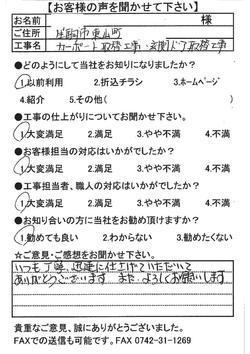 【お客様の声を聞かせて下さい】
お名前 様
ご住所 生駒市東山町
工事名 カーポート取替工事・玄関ドア取替工事
●どのようにして当社をお知りになりましたか？
1.以前利用 2.折込チラシ 3.ホームページ
4.紹介 5.その他( )
●工事の仕上がりについてお聞かせ下さい。
1.大変満足 2.満足 3.やや不満 4.不満
●お客様担当の対応はいかがでしたか？
1.大変満足 2.満足 3.やや不満 4.不満
●工事担当者、職人の対応はいかがでしたか？
1.大変満足 2.満足 3.やや不満 4.不満
●お知り合いの方に当社をお勧め頂けますか？
1.勧めても良い 2.わからない 3.勧めたくない
☆ご意見・ご感想をお聞かせ下さい☆
いつも丁寧、迅速に仕上げていただいて
ありがとうございます また、よろしくお願いします
貴重なご意見、誠にありがとうございました。
FAXでの送信も可能です。FAX 0742-31-1269